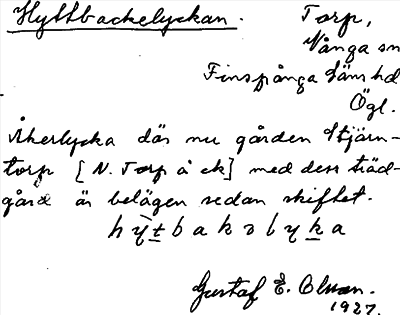 Hyttbackelyckan. Torp,
Vånga sn
Finspånga läns hd
Ögl.
Åkerlycka där nu gården Stjärn-
torp [N. Torp å ek] med dess träd-
gård är belägen sedan skiftet.
hy̆̀t̲bakɔlyk̲a
Gustaf E. Olsson.
1927.